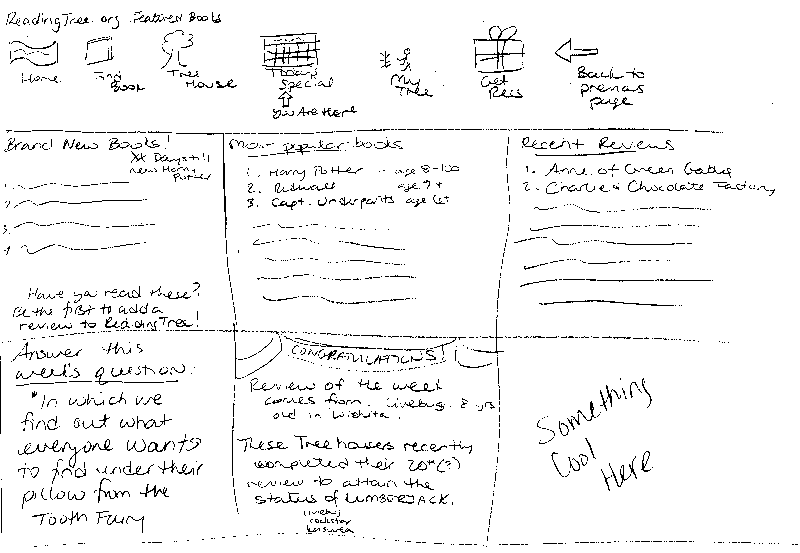 ReadingTree.org Featured Books
Home
Find Book
Tree House
Today's Special
You Are Here
My Tree
Get Recs
Back to previous page
Brand New Books!
XX Days till
new Harry
Potter
1.
2.
3.
4.
Have you read these?
Be the first to add a
review to ReadingTree!
Most popular books
1. Harry Potter - age 8-100
2. Redwall age 9+
3. Capt. Underpants age 6+
Recent Reviews
1. Anne of Green Gables
2. Charlie & Chocolate Factory
Answer this
week's question:
"In which we
find out what
everyone wants
to find under their
pillow from the
Tooth Fairy
CONGRATULATIONS!
Review of the week
comes from 8 yrs
old in Wichita.
These Treehousers recently
completed their 20th(?)
review to attain the
status of LUMBERJACK.
rockstar
Something
Cool
Here